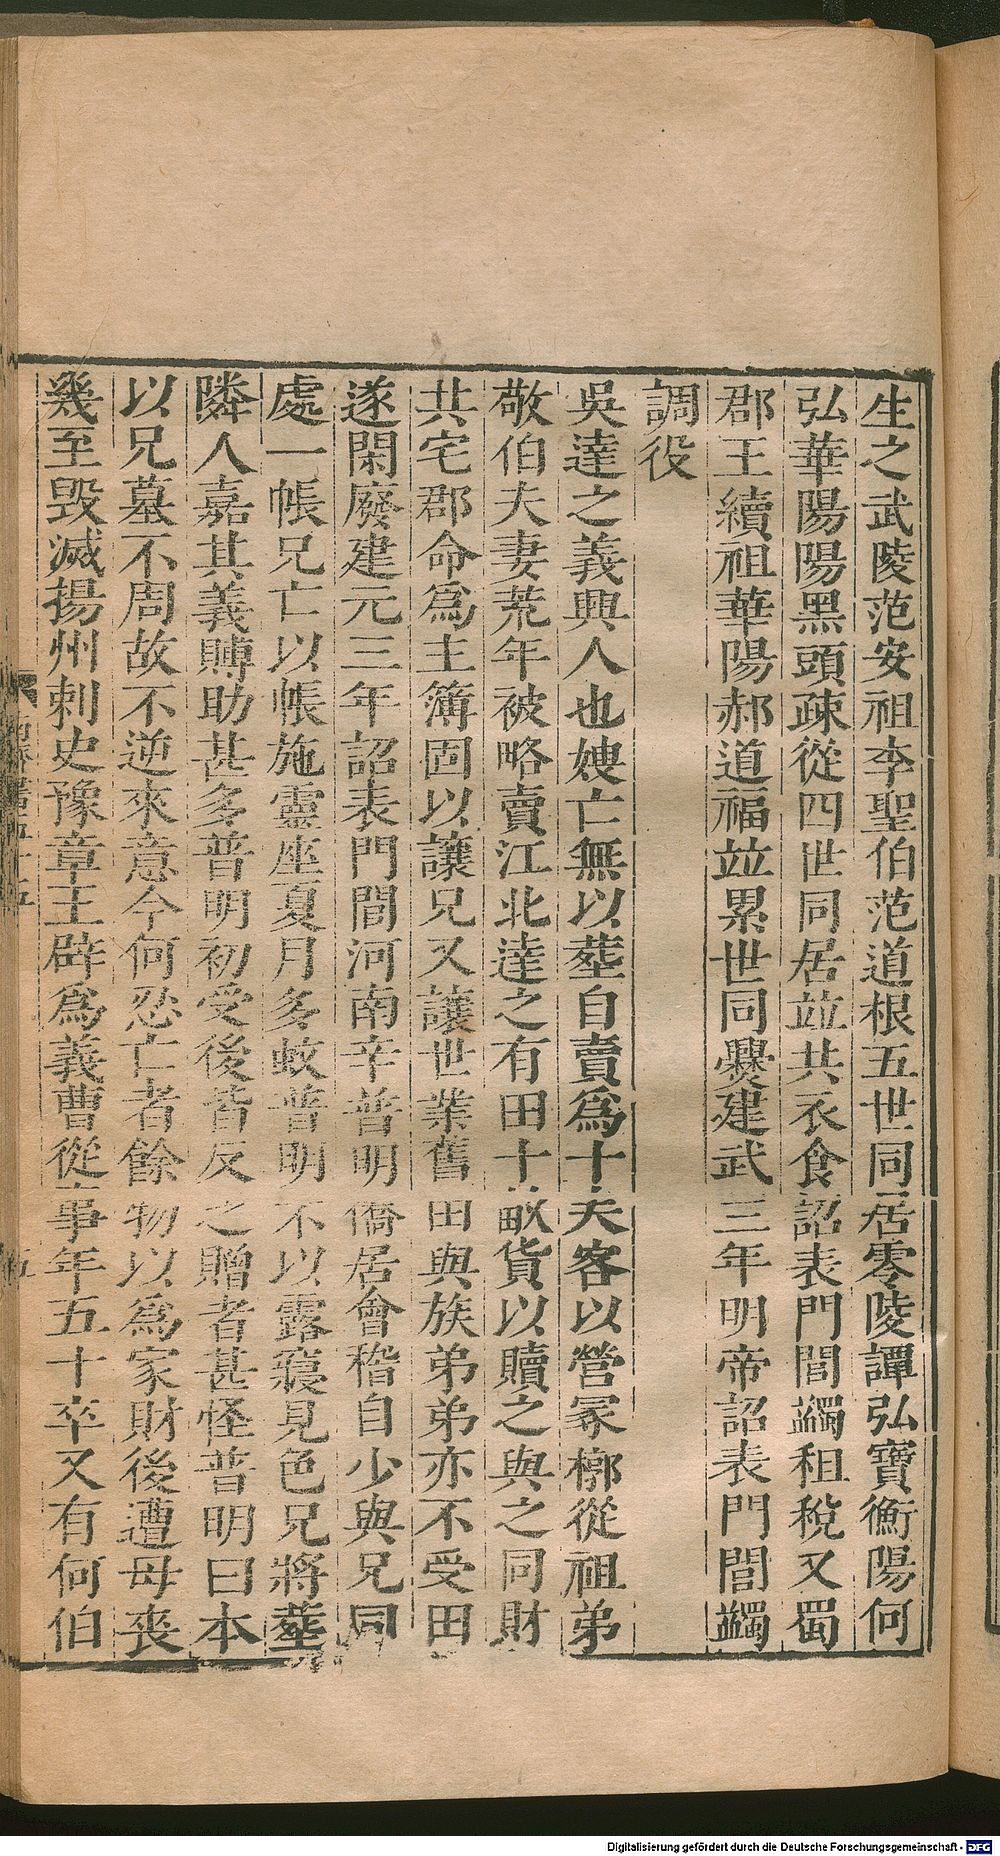 生之武陵范安祖李聖伯范道根五世同居零陵譚弘寶衡陽何
弘華陽陽黑頭疎從四世同居竝共衣食詔表門閭蠲租稅又蜀
郡王續祖華陽郝道福竝累世同爨建武三年明帝詔表門閭蠲
調役
吳達之義興人也嫂亡無以葬自賣爲十夫客以營冢槨從祖弟
敬伯夫妻荒年被略賣江北達之有田十畝貨以贖之與之同財
共宅郡命爲主簿固以讓兄又讓世業舊田與族弟弟亦不受田
遂閑廢建元三年詔表門閭河南辛普明僑居會稽自少與兄同
處一帳兄亡以帳施靈座夏月多蚊普明不以露寢見色兄將葬
隣人嘉其義賻助甚多普明初受後皆反之贈者甚怪普明曰本
以兄墓不周故不逆來意今何忍亡者餘物以爲家財後遭母喪
幾至毀滅揚州刺史豫章王辟爲義曹從事年五十卒又有何伯
Digitalisierung gefördert durch die Deutsche Forschungsgemeinschaft - DFG